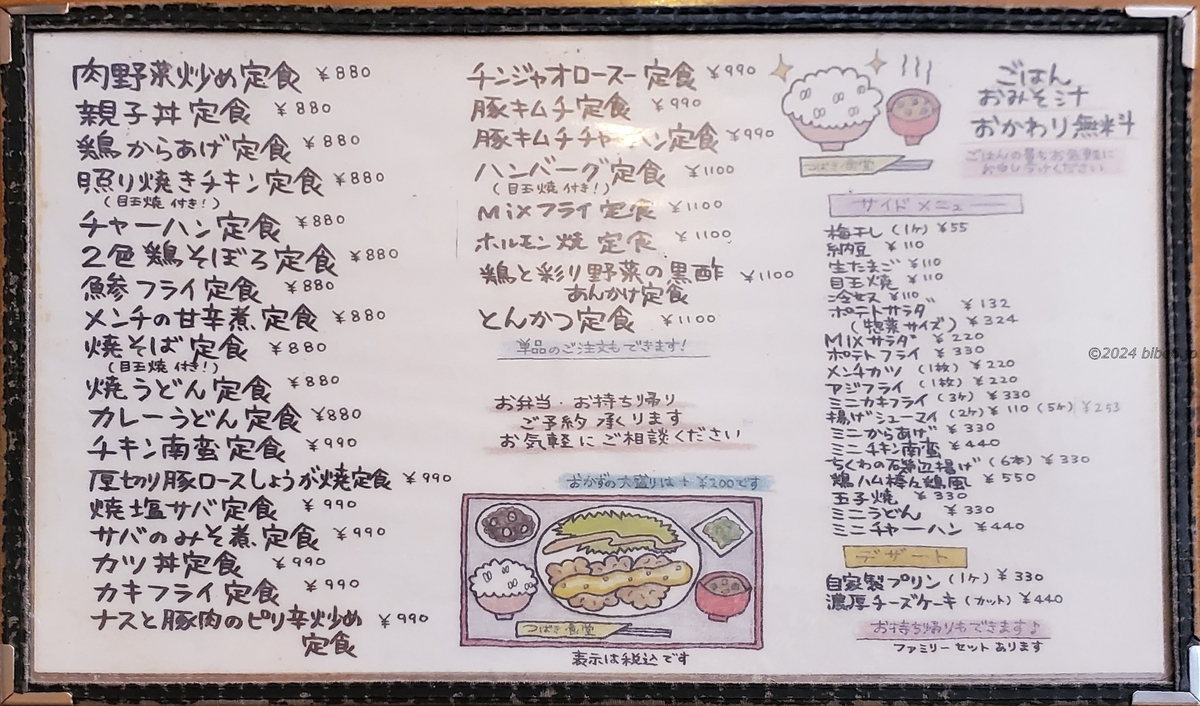 肉野菜炒め定食 ¥880
親子丼定食 ¥880
鶏からあげ定食 ¥880
照り焼きチキン定食 ¥880
(目玉焼 付き!)
チャーハン定食 ¥880
2色鶏そぼろ定食 ¥880
魚参フライ定食 ¥880
メンチの甘辛煮定食 ¥880
焼そば定食 ¥880
(目玉焼 付き!)
焼うどん定食 ¥880
カレーうどん定食 ¥880
チキン南蛮定食 ¥990
厚切り豚ロースしょうが焼定食 ¥990
焼塩サバ定食 ¥990
サバのみそ煮定食 ¥990
カツ丼定食 ¥990
カキフライ定食 ¥990
ナスと豚肉のピリ辛炒め ¥990
定食
チンジャオロースー定食 ¥990
豚キムチ定食 ¥990
豚キムチチャーハン定食 ¥990
ハンバーグ定食 ¥1100
(目玉焼 付き!)
Mixフライ定食 ¥1100
ホルモン焼 定食 ¥1100
鶏と彩り野菜の黒酢 ¥1100
あんかけ定食
とんかつ定食 ¥1100
単品のご注文もできます!
お弁当・お持ち帰り
ご予約 承ります
お気軽にご相談ください
おかずの大盛りは+¥200です
つばき食堂
表示は税込です
つばき食堂
ごはん
おみそ汁
おかわり無料
ごはんの量もお気軽に
お申しつけください
サイドメニュー
梅干し(1ケ) ¥55
納豆 ¥110
生たまご ¥110
目玉焼 ¥110
冷奴 ¥110
ポテトサラダ ¥132
(惣菜サイズ) ¥324
MIXサラダ ¥220
ポテトフライ ¥330
メンチカツ(1枚) ¥220
アジフライ(1枚) ¥220
ミニカキフライ(3ケ) ¥330
揚げシューマイ(2ケ) ¥110 (5ケ) ¥253
ミニからあげ ¥330
ミニチキン南蛮 ¥440
ちくわの石磯辺揚げ(6本) ¥330
鶏ハム棒々鶏風 ¥550
玉子焼 ¥330
ミニうどん ¥330
ミニチャーハン ¥440
デザート
自家製プリン(1ケ) ¥330
濃厚チーズケーキ(カット) ¥440
お持ち帰りもできます♪
ファミリーセットあります